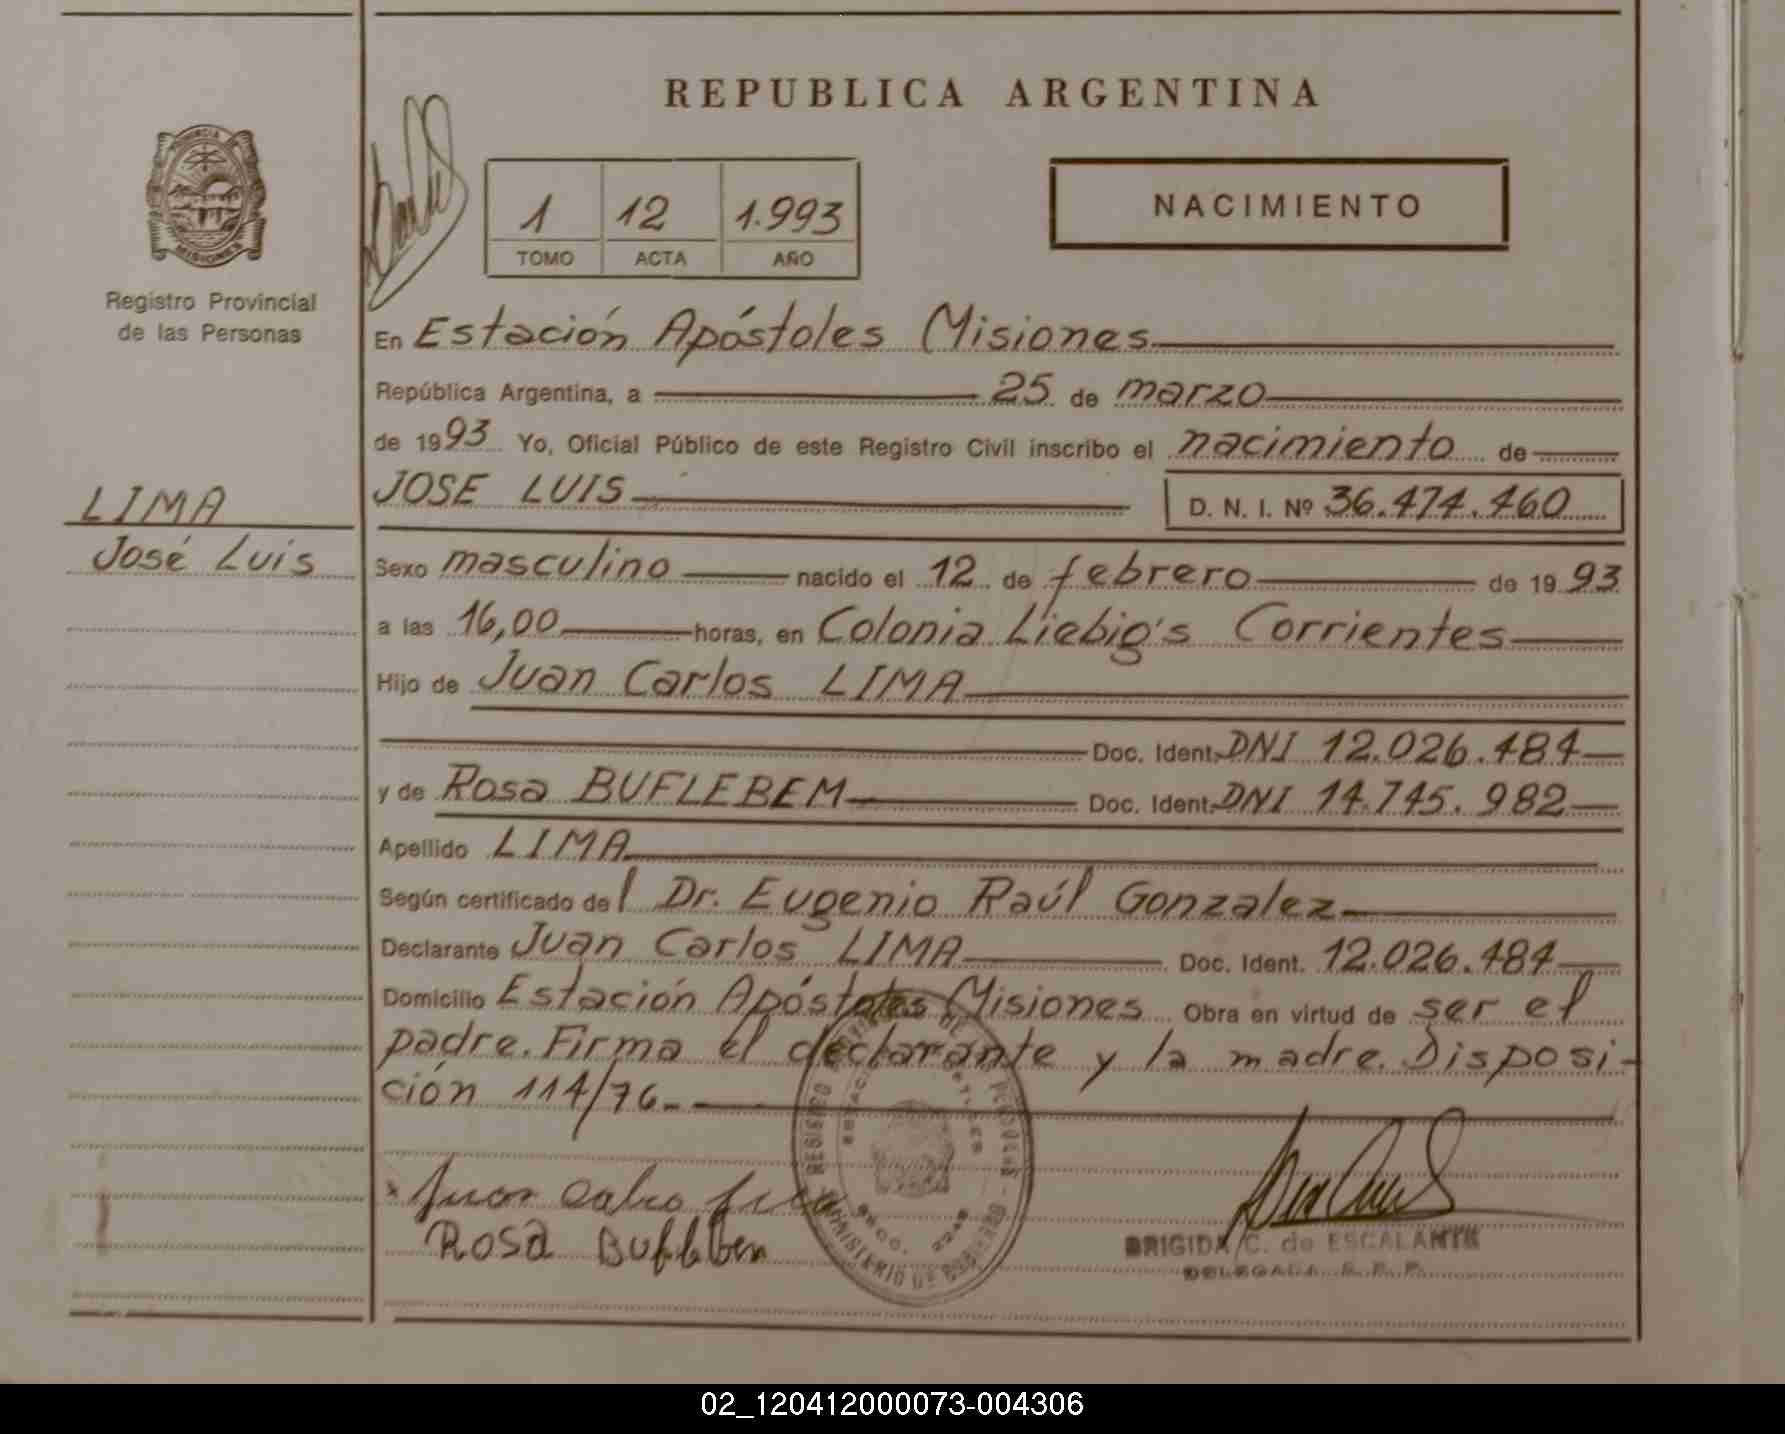 REPUBLICA ARGENTINA
PROVINCIA
MISIONES
Registro Provincial
de las Personas
1 12 1.993
TOMO ACTA AÑO
NACIMIENTO
En Estación Apóstoles Misiones
República Argentina, a 25 de marzo
de 1993 Yo, Oficial Público de este Registro Civil inscribo el nacimiento de
JOSE LUIS D. N. I. Nº 36.474.460
LIMA
José Luis
Sexo masculino nacido el 12 de febrero de 1993
a las 16,00 horas, en Colonia Liebig's Corrientes
Hijo de Juan Carlos LIMA
Doc. Ident. DNI 12.026.484
y de Rosa BUFLEBEM Doc. Ident. DNI 14.745.982
Apellido LIMA
Según certificado del Dr. Eugenio Raúl Gonzalez
Declarante Juan Carlos LIMA Doc. Ident. 12.026.484
Domicilio Estación Apóstoles Misiones Obra en virtud de ser el
padre. Firma el declarante y la madre. Disposi-
ción 114/76.
Rosa Bufleben
BRIGIDA C. de ESCALANTE
DELEGADA R. P. P.
02_120412000073-004306